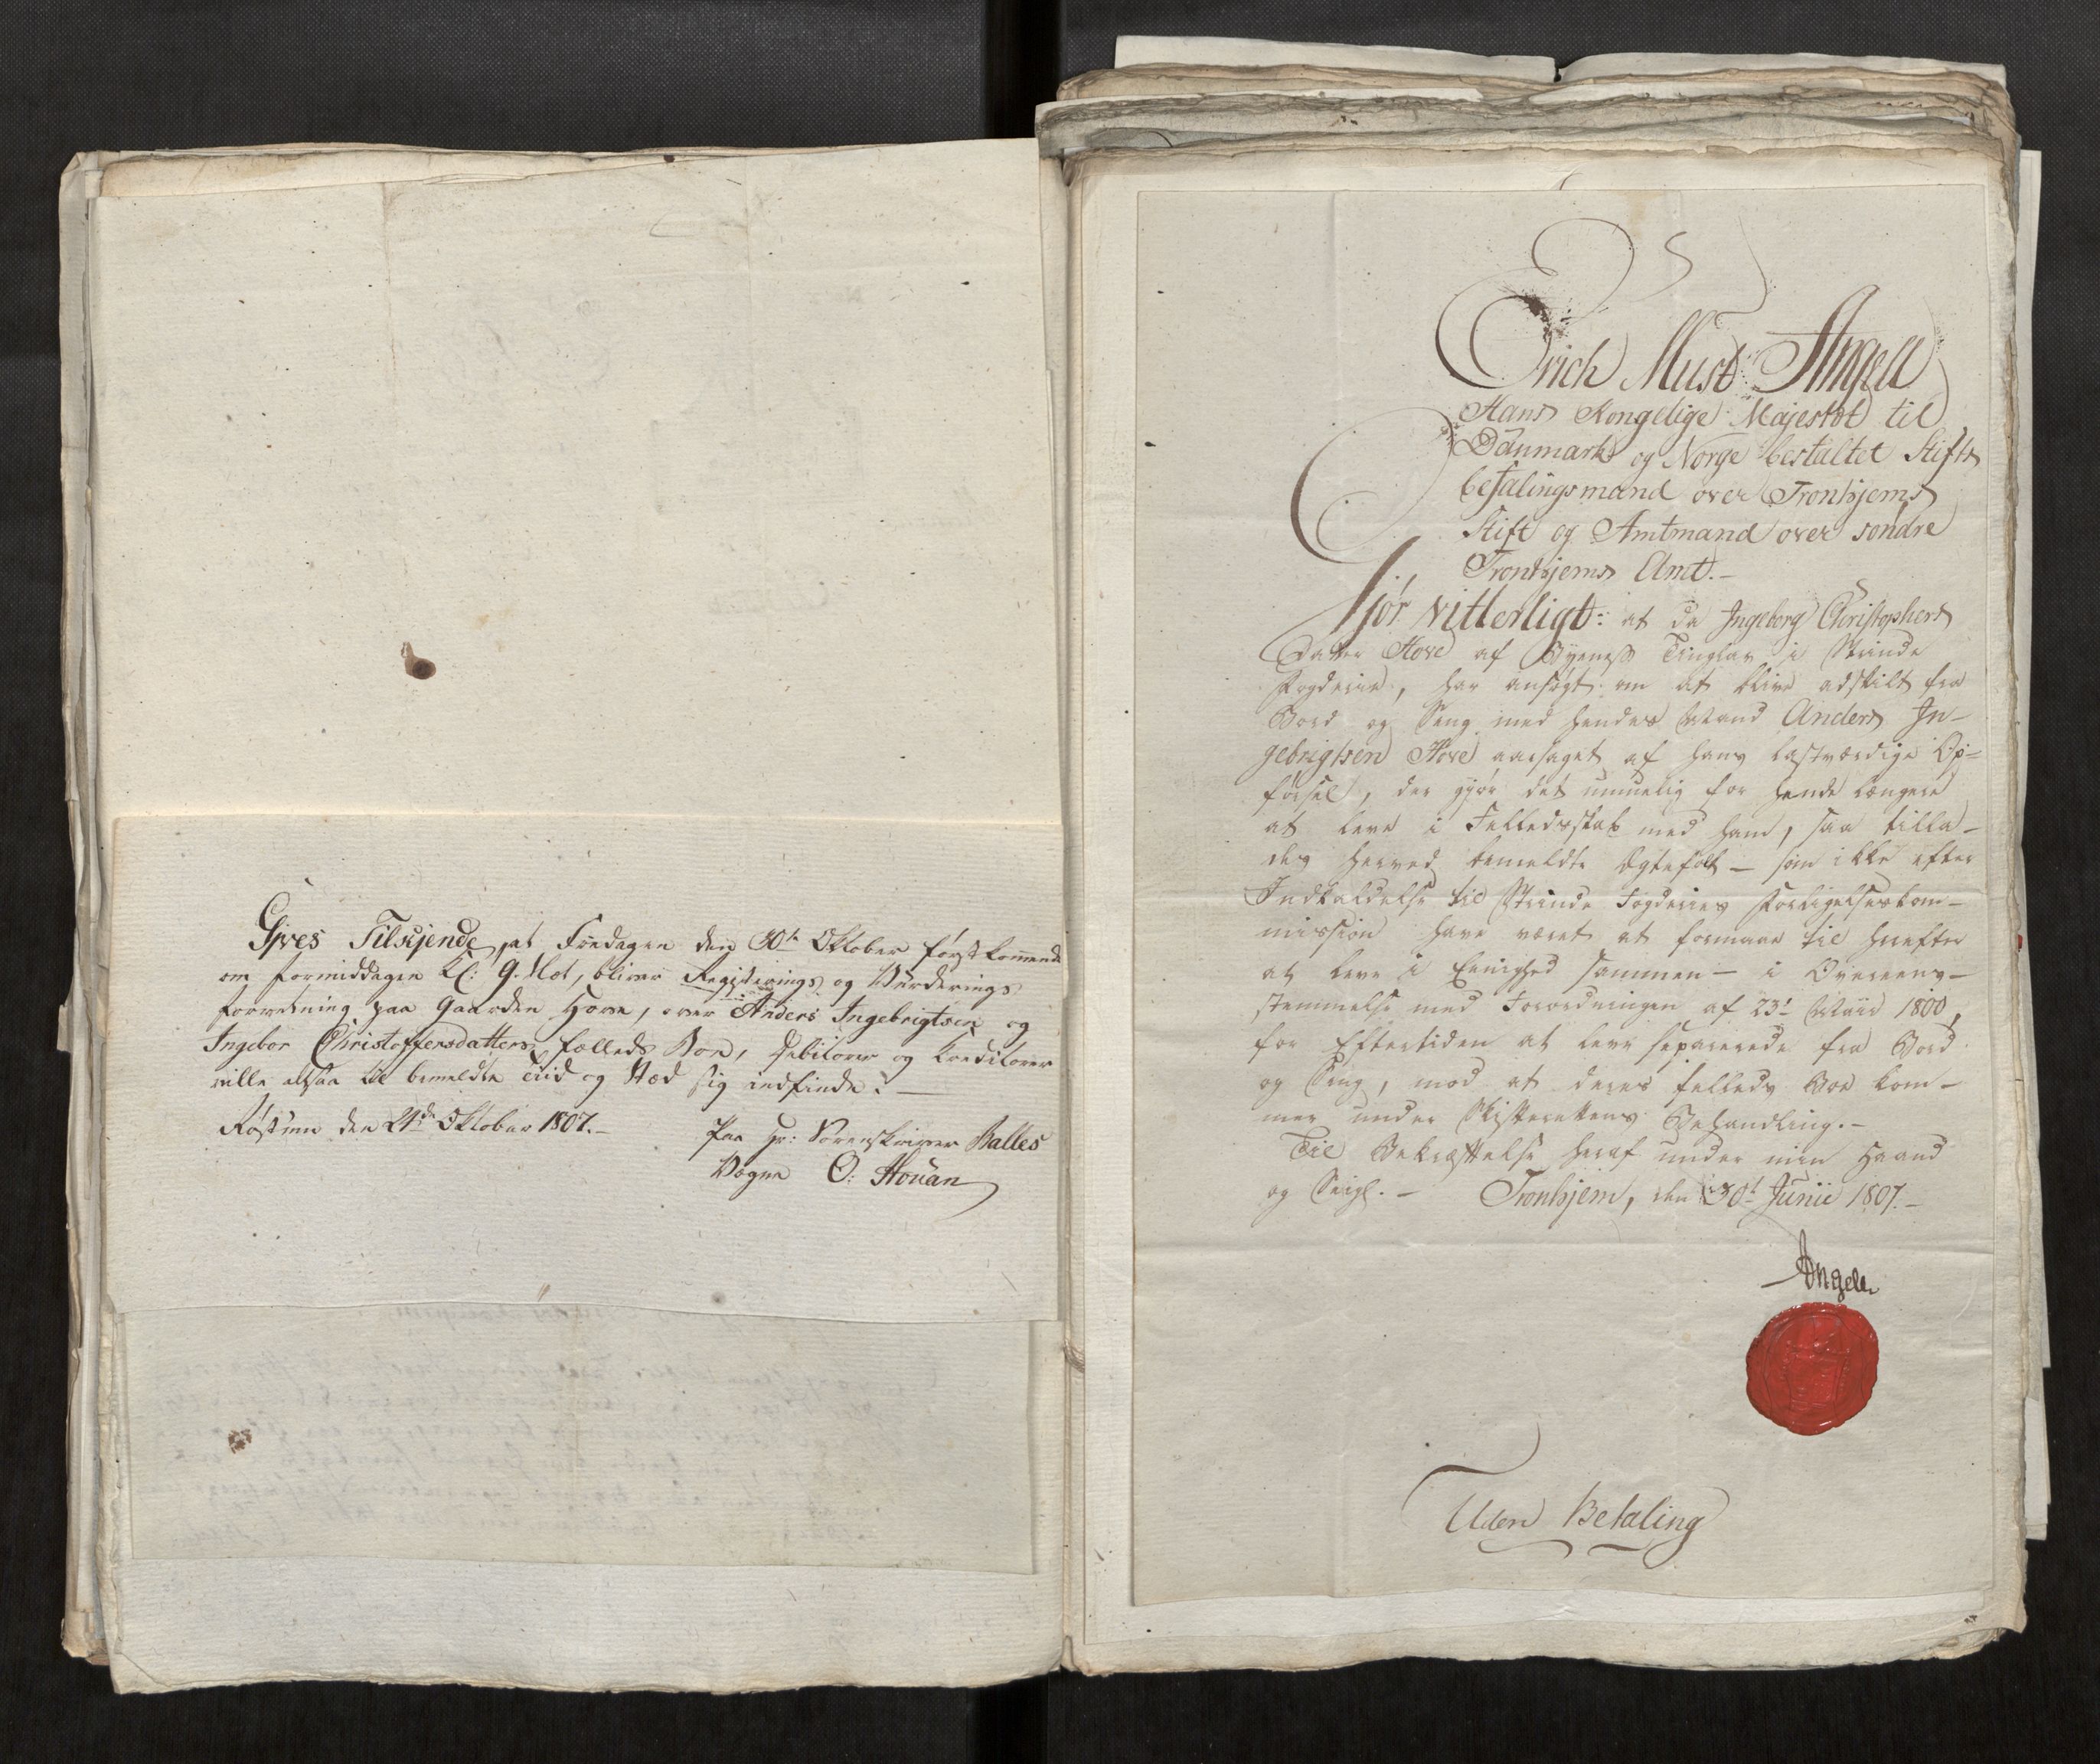 Gives Tilkjende, at Fredagen den 30te Oktober førstkommende
om formiddagen Kl: 9. Slet, bliver Registerings og Vurderings
forretning paa Gaarden Hove, over Anders Ingebrigtsen og
Ingebor Christoffersdatters fælleds Boe, Debitorer og Kreditorer
ville altsaa til bemeldte Tiid og Stæd sig indfinde. —
den 24de Oktober 1807. —
Paa Hr: Sorenskriver Balles
Vegne O: Houan
Erich Must Angell
Hans Kongelige Majestæt til
Danmark og Norge bestaltet Stifts
befalingsmand over Tronhjems
Stift og Amtmand over søndre
Tronhjems Amt. —
Gjør vitterligt: at da Ingeborg Christophers
Datter Hove af Byeness Tinglav i Strinde
Fogderie, har ansøgt om at blive adskilt fra
Bord og Seng med hendes Mand Anders In-
gebrigtsen Hove aarsaget af hans lastværdige Op-
førsel, der gjør det umuelig for hende længere
at leve i Felledsskab med ham, saa tilla-
des herved bemeldte Ægtefolk — som ikke efter
Indkaldelse til Strinde Fogderies Forligelseskom-
mission have været at formaae til herefter
at leve i Eenighed sammen — i Overeens-
stemmelse med Forordningen af 23d Maii 1800,
for Eftertiden at leve separerede fra Bord
og Seng, mod at deres felleds Boe kom-
mer under Skifterettens Behandling. —
Til Bekræftelse heraf under min Haand
og Seigl. — Tronhjem, den 30t Junii 1807. —
Angell
Uden Betaling